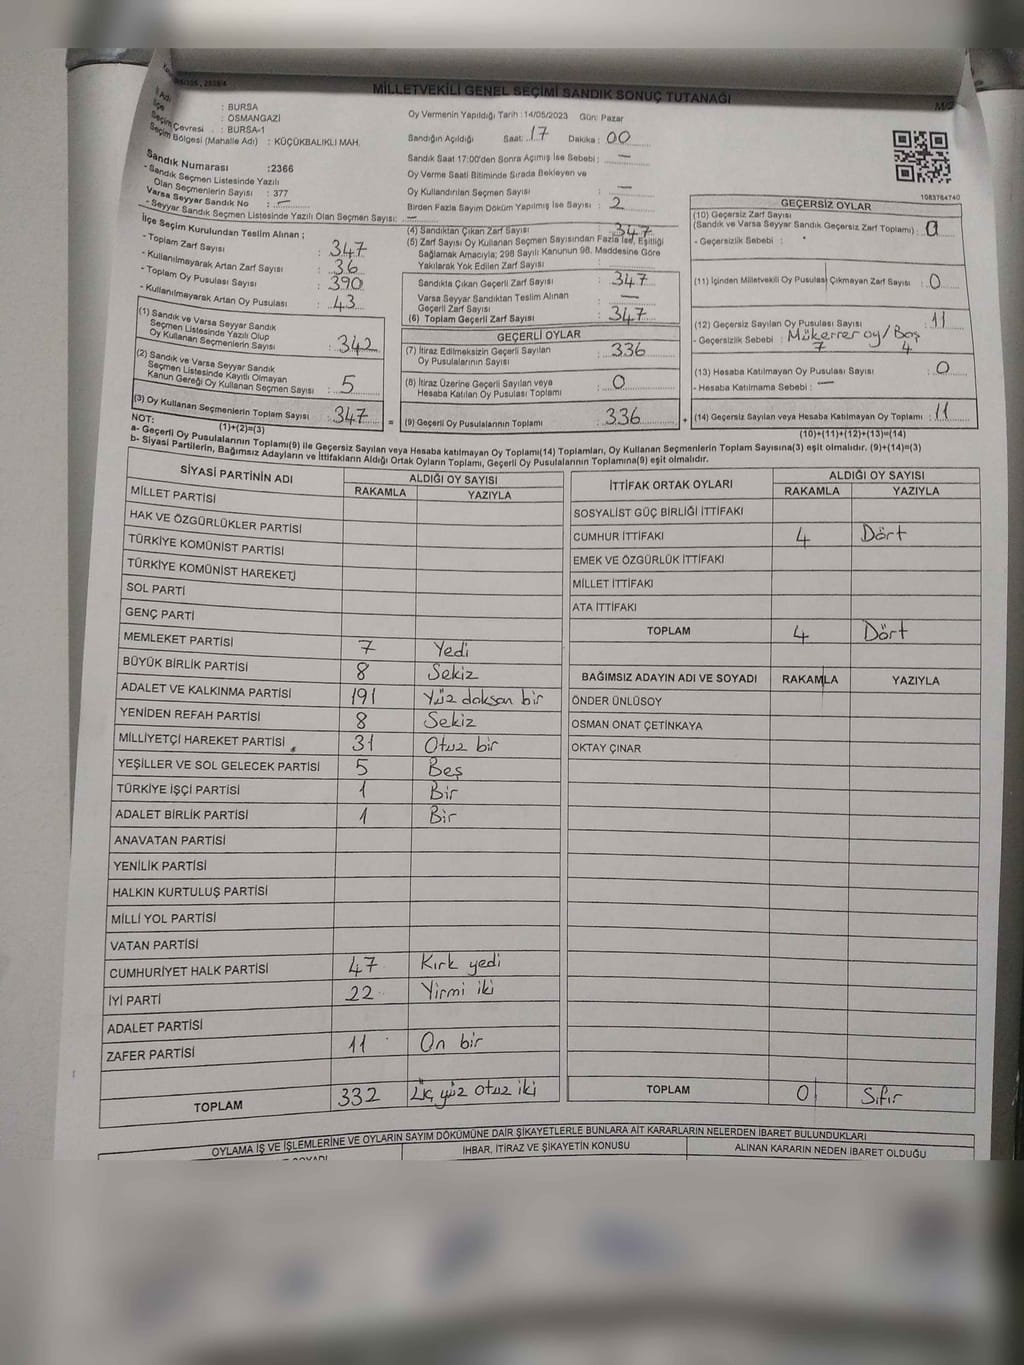 MİLLETVEKİLİ GENEL SEÇİMİ SANDIK SONUÇ TUTANAĞI
M/2
İl Adı : BURSA
İlçe : OSMANGAZİ
Seçim Çevresi : BURSA-1
Seçim Bölgesi (Mahalle Adı) : KÜÇÜKBALIKLI MAH.
Sandık Numarası :2366
- Sandık Seçmen Listesinde Yazılı
Olan Seçmenlerin Sayısı : 377
Varsa Seyyar Sandık No : —
- Seyyar Sandık Seçmen Listesinde Yazılı Olan Seçmen Sayısı: —
Oy Vermenin Yapıldığı Tarih : 14/05/2023 Gün: Pazar
Sandığın Açıldığı Saat: 17 Dakika : 00
Sandık Saat 17:00'den Sonra Açımış İse Sebebi : —
Oy Verme Saati Bitiminde Sırada Bekleyen ve
Oy Kullandırılan Seçmen Sayısı : —
Birden Fazla Sayım Döküm Yapılmış İse Sayısı : 2
1083764740
İlçe Seçim Kurulundan Teslim Alınan ;
- Toplam Zarf Sayısı : 347
- Kullanılmayarak Artan Zarf Sayısı : 36
- Toplam Oy Pusulası Sayısı : 390
- Kullanılmayarak Artan Oy Pusulası : 43
(1) Sandık ve Varsa Seyyar Sandık
Seçmen Listesinde Yazılı Olup
Oy Kullanan Seçmenlerin Sayısı : 342
(2) Sandık ve Varsa Seyyar Sandık
Seçmen Listesinde Kayıtlı Olmayan
Kanun Gereği Oy Kullanan Seçmen Sayısı : 5
(3) Oy Kullanan Seçmenlerin Toplam Sayısı : 347
(1)+(2)=(3)
(4) Sandıktan Çıkan Zarf Sayısı : 347
(5) Zarf Sayısı Oy Kullanan Seçmen Sayısından Fazla İse, Eşitliği
Sağlamak Amacıyla; 298 Sayılı Kanunun 98. Maddesine Göre
Yakılarak Yok Edilen Zarf Sayısı :
Sandıkta Çıkan Geçerli Zarf Sayısı : 347
Varsa Seyyar Sandıktan Teslim Alınan
Geçerli Zarf Sayısı : —
(6) Toplam Geçerli Zarf Sayısı : 347
GEÇERLİ OYLAR
(7) İtiraz Edilmeksizin Geçerli Sayılan
Oy Pusulalarının Sayısı : 336
(8) İtiraz Üzerine Geçerli Sayılan veya
Hesaba Katılan Oy Pusulası Toplamı : 0
= (9) Geçerli Oy Pusulalarının Toplamı : 336 +
GEÇERSİZ OYLAR
(10) Geçersiz Zarf Sayısı
(Sandık ve Varsa Seyyar Sandık Geçersiz Zarf Toplamı) : 0
- Geçersizlik Sebebi :
(11) İçinden Milletvekili Oy Pusulası Çıkmayan Zarf Sayısı : 0
(12) Geçersiz Sayılan Oy Pusulası Sayısı : 11
- Geçersizlik Sebebi : Mükerrer oy/Boş
7 4
(13) Hesaba Katılmayan Oy Pusulası Sayısı : 0
- Hesaba Katılmama Sebebi : —
(14) Geçersiz Sayılan veya Hesaba Katılmayan Oy Toplamı : 11
(10)+(11)+(12)+(13)=(14)
NOT:
a- Geçerli Oy Pusulalarının Toplamı(9) ile Geçersiz Sayılan veya Hesaba katılmayan Oy Toplamı(14) Toplamları, Oy Kullanan Seçmenlerin Toplam Sayısına(3) eşit olmalıdır. (9)+(14)=(3)
b- Siyasi Partilerin, Bağımsız Adayların ve İttifakların Aldığı Ortak Oyların Toplamı, Geçerli Oy Pusulalarının Toplamına(9) eşit olmalıdır.
SİYASİ PARTİNİN ADI ALDIĞI OY SAYISI
RAKAMLA YAZIYLA
MİLLET PARTİSİ
HAK VE ÖZGÜRLÜKLER PARTİSİ
TÜRKİYE KOMÜNİST PARTİSİ
TÜRKİYE KOMÜNİST HAREKETİ
SOL PARTİ
GENÇ PARTİ
MEMLEKET PARTİSİ 7 Yedi
BÜYÜK BİRLİK PARTİSİ 8 Sekiz
ADALET VE KALKINMA PARTİSİ 191 Yüz doksan bir
YENİDEN REFAH PARTİSİ 8 Sekiz
MİLLİYETÇİ HAREKET PARTİSİ 31 Otuz bir
YEŞİLLER VE SOL GELECEK PARTİSİ 5 Beş
TÜRKİYE İŞÇİ PARTİSİ 1 Bir
ADALET BİRLİK PARTİSİ 1 Bir
ANAVATAN PARTİSİ
YENİLİK PARTİSİ
HALKIN KURTULUŞ PARTİSİ
MİLLİ YOL PARTİSİ
VATAN PARTİSİ
CUMHURİYET HALK PARTİSİ 47 Kırk yedi
İYİ PARTİ 22 Yirmi iki
ADALET PARTİSİ
ZAFER PARTİSİ 11 On bir
TOPLAM 332 Üç yüz otuz iki
İTTİFAK ORTAK OYLARI ALDIĞI OY SAYISI
RAKAMLA YAZIYLA
SOSYALİST GÜÇ BİRLİĞİ İTTİFAKI
CUMHUR İTTİFAKI 4 Dört
EMEK VE ÖZGÜRLÜK İTTİFAKI
MİLLET İTTİFAKI
ATA İTTİFAKI
TOPLAM 4 Dört
BAĞIMSIZ ADAYIN ADI VE SOYADI RAKAMLA YAZIYLA
ÖNDER ÜNLÜSOY
OSMAN ONAT ÇETİNKAYA
OKTAY ÇINAR
TOPLAM 0 Sıfır
OYLAMA İŞ VE İŞLEMLERİNE VE OYLARIN SAYIM DÖKÜMÜNE DAİR ŞİKAYETLERLE BUNLARA AİT KARARLARIN NELERDEN İBARET BULUNDUKLARI
İHBAR, İTİRAZ VE ŞİKAYETİN KONUSU ALINAN KARARIN NEDEN İBARET OLDUĞU